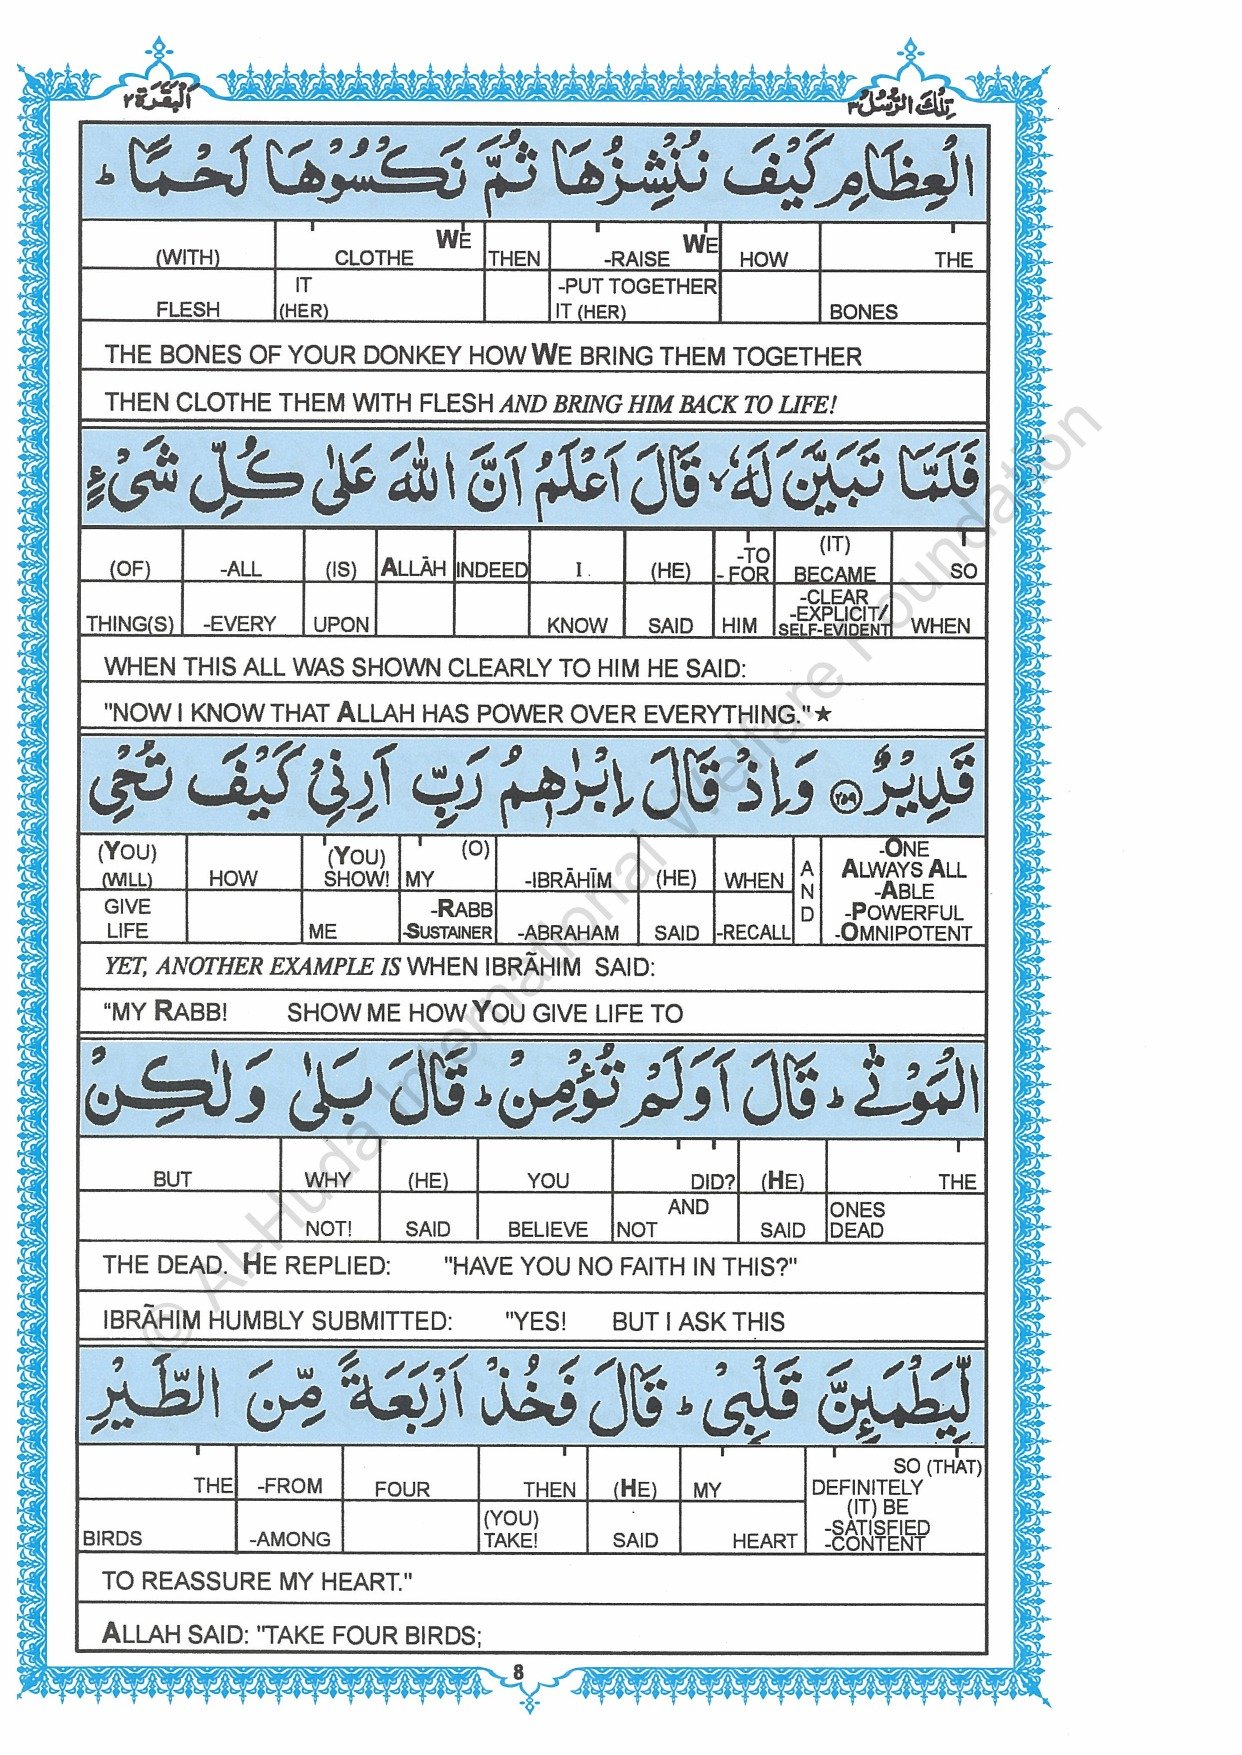 تِلْكَ الرُّسُلُ ٣
اَلْبَقَرَة ٢
الْعِظَامِ كَيْفَ نُنْشِزُهَا ثُمَّ نَكْسُوْهَا لَحْمًا ؕ
(WITH) CLOTHE WE THEN -RAISE WE HOW THE
FLESH IT (HER) -PUT TOGETHER IT (HER) BONES
THE BONES OF YOUR DONKEY HOW WE BRING THEM TOGETHER
THEN CLOTHE THEM WITH FLESH AND BRING HIM BACK TO LIFE!
فَلَمَّا تَبَيَّنَ لَهٗ ۙ قَالَ اَعْلَمُ اَنَّ اللّٰهَ عَلٰى كُلِّ شَیْءٍ
(OF) -ALL (IS) ALLĀH INDEED I (HE) -TO - FOR (IT) BECAME SO
THING(S) -EVERY UPON KNOW SAID HIM -CLEAR -EXPLICIT/ SELF-EVIDENT WHEN
WHEN THIS ALL WAS SHOWN CLEARLY TO HIM HE SAID:
"NOW I KNOW THAT ALLAH HAS POWER OVER EVERYTHING."★
قَدِيْرٌ ﴿٢٥٩﴾ وَاِذْ قَالَ اِبْرٰهٖمُ رَبِّ اَرِنِیْ كَيْفَ تُحْیِ
(YOU) (WILL) HOW (YOU) SHOW! MY (O) -IBRĀHĪM (HE) WHEN AND -ONE ALWAYS ALL -ABLE
GIVE LIFE ME -RABB -SUSTAINER -ABRAHAM SAID -RECALL -POWERFUL -OMNIPOTENT
YET, ANOTHER EXAMPLE IS WHEN IBRÃHIM SAID:
"MY RABB! SHOW ME HOW YOU GIVE LIFE TO
الْمَوْتٰى ؕ قَالَ اَوَلَمْ تُؤْمِنْ ؕ قَالَ بَلٰى وَلٰكِنْ
BUT WHY (HE) YOU DID? (HE) THE
NOT! SAID BELIEVE NOT AND SAID ONES DEAD
THE DEAD. HE REPLIED: "HAVE YOU NO FAITH IN THIS?"
IBRÃHIM HUMBLY SUBMITTED: "YES! BUT I ASK THIS
لِّيَطْمَئِنَّ قَلْبِیْ ؕ قَالَ فَخُذْ اَرْبَعَةً مِّنَ الطَّيْرِ
THE -FROM FOUR THEN (HE) MY SO (THAT) DEFINITELY (IT) BE
BIRDS -AMONG (YOU) TAKE! SAID HEART -SATISFIED -CONTENT
TO REASSURE MY HEART."
ALLAH SAID: "TAKE FOUR BIRDS;
8
© Al-Huda International Welfare Foundation